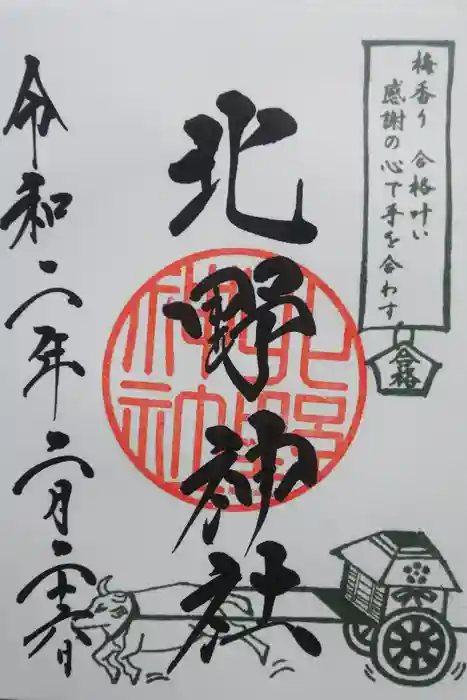 梅香り 合格叶い
感謝の心で手を合わす
合格
北野神社
北野
神社
令和二年二月二十六日